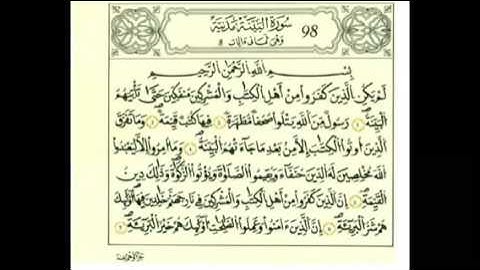 سُورَةُ الْبَيِّنَةِ مَدَنِيَّة 98
وَهِيَ ثَمَانِي ءَايَات
بِسْمِ اللَّهِ الرَّحْمَٰنِ الرَّحِيمِ
لَمْ يَكُنِ الَّذِينَ كَفَرُوا مِنْ أَهْلِ الْكِتَٰبِ وَالْمُشْرِكِينَ مُنفَكِّينَ حَتَّىٰ تَأْتِيَهُمُ
الْبَيِّنَةُ ١ رَسُولٌ مِّنَ اللَّهِ يَتْلُوا صُحُفًا مُّطَهَّرَةً ٢ فِيهَا كُتُبٌ قَيِّمَةٌ ٣ وَمَا تَفَرَّقَ
الَّذِينَ أُوتُوا الْكِتَٰبَ إِلَّا مِنۢ بَعْدِ مَا جَآءَتْهُمُ الْبَيِّنَةُ ٤ وَمَآ أُمِرُوٓا إِلَّا لِيَعْبُدُوا
اللَّهَ مُخْلِصِينَ لَهُ الدِّينَ حُنَفَآءَ وَيُقِيمُوا الصَّلَوٰةَ وَيُؤْتُوا الزَّكَوٰةَ وَذَٰلِكَ دِينُ
الْقَيِّمَةِ ٥ إِنَّ الَّذِينَ كَفَرُوا مِنْ أَهْلِ الْكِتَٰبِ وَالْمُشْرِكِينَ فِي نَارِ جَهَنَّمَ خَٰلِدِينَ فِيهَآ أُولَٰٓئِكَ
هُمْ شَرُّ الْبَرِيَّةِ ٦ إِنَّ الَّذِينَ ءَامَنُوا وَعَمِلُوا الصَّٰلِحَٰتِ أُولَٰٓئِكَ هُمْ خَيْرُ الْبَرِيَّةِ ٧